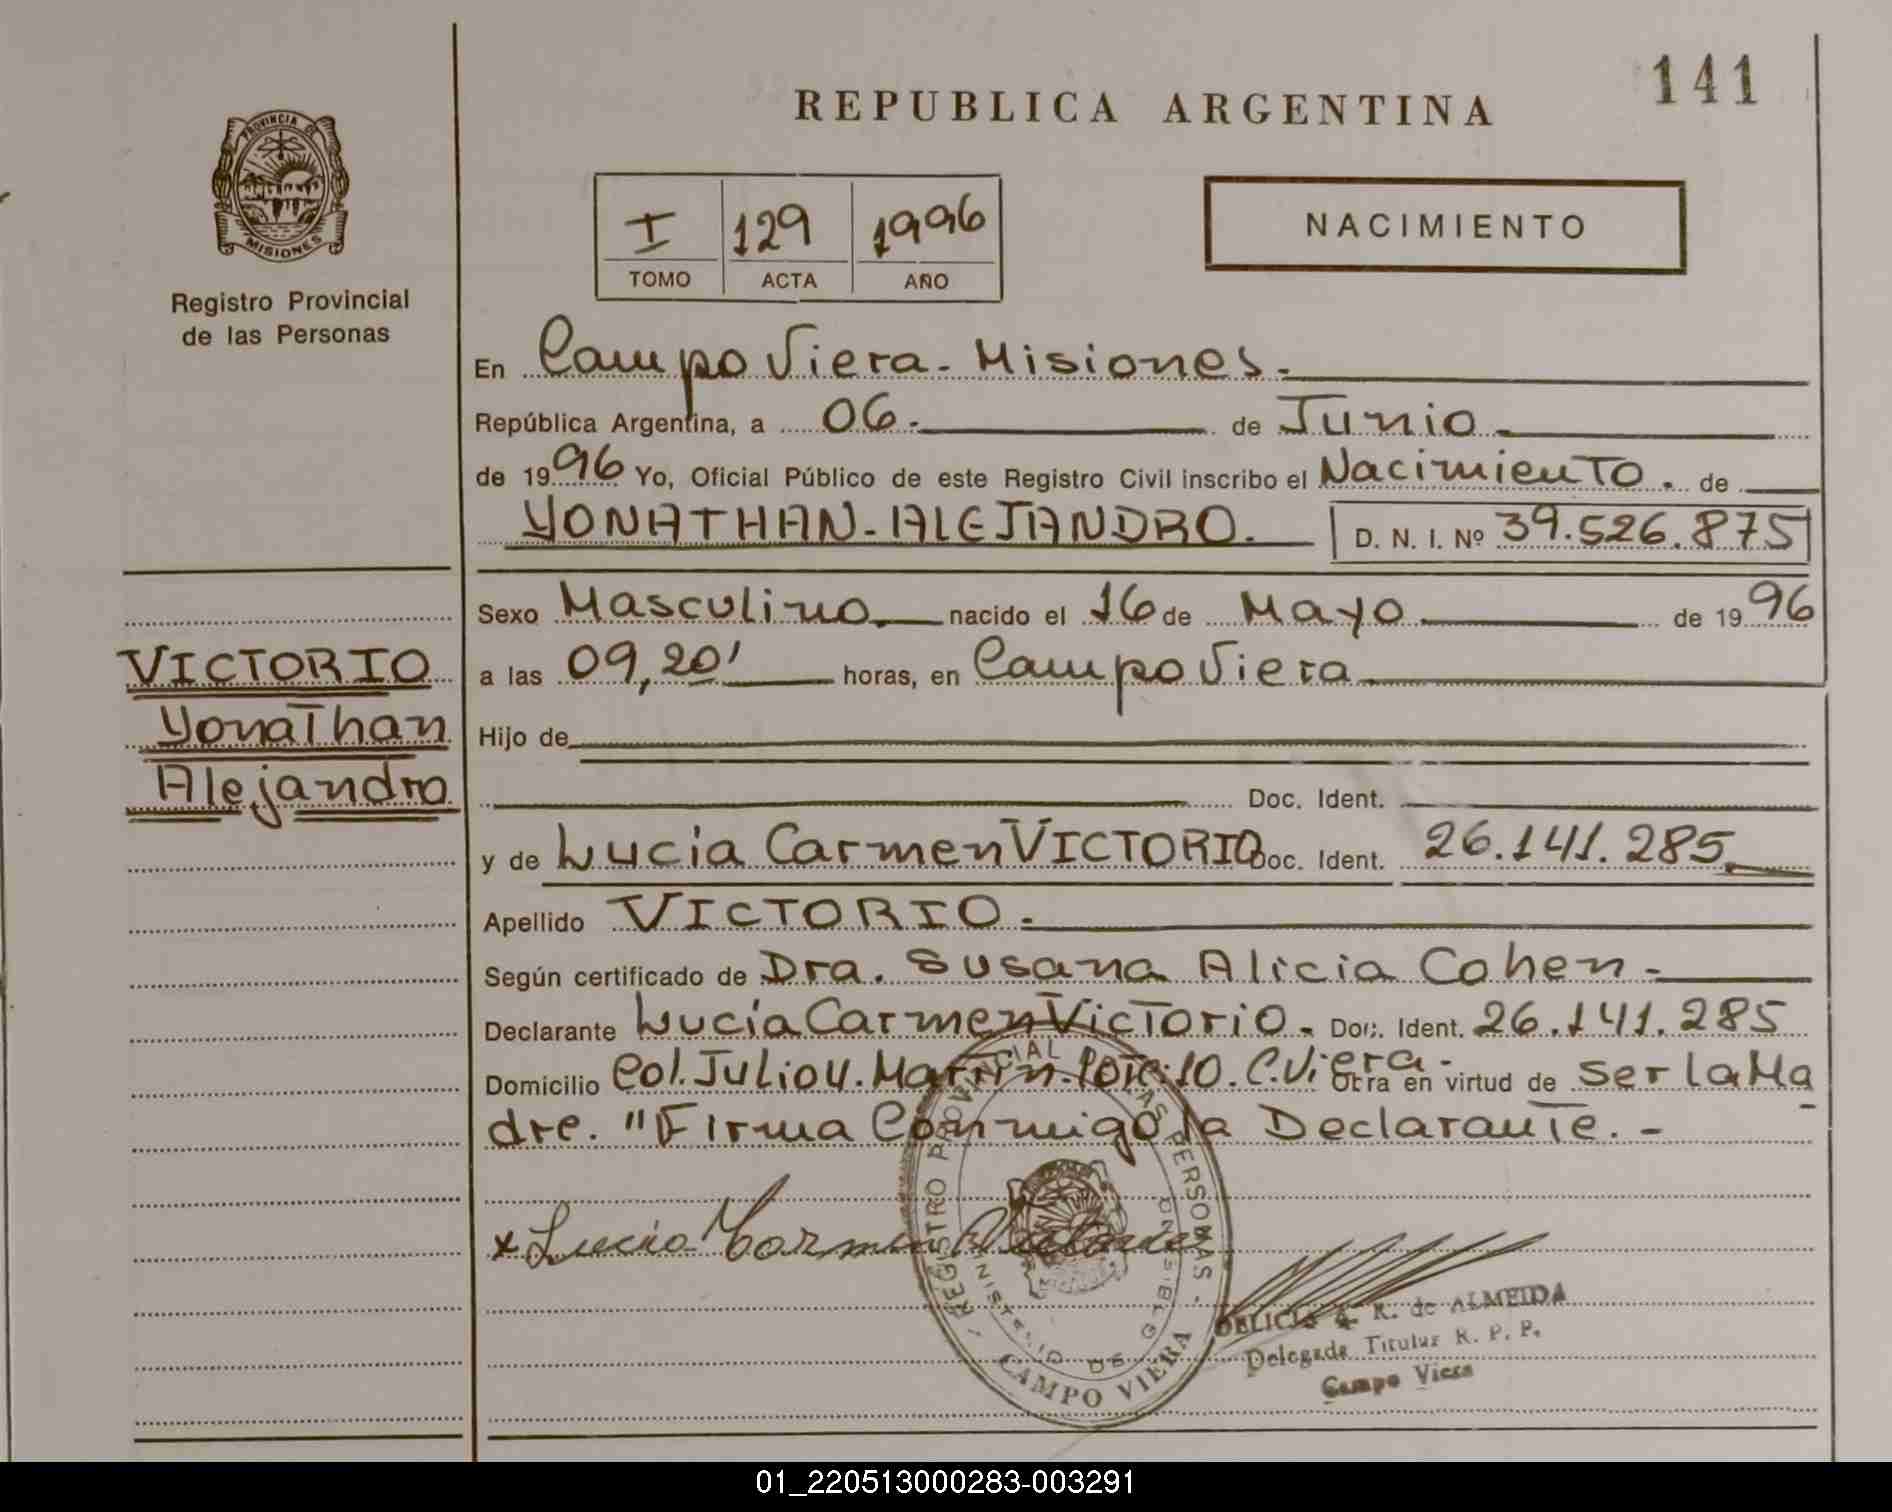 141
REPUBLICA ARGENTINA
PROVINCIA DE
MISIONES
Registro Provincial
de las Personas
I 129 1996
TOMO ACTA AÑO
NACIMIENTO
En Campo Viera - Misiones.
República Argentina, a 06. de Junio
de 1996 Yo, Oficial Público de este Registro Civil inscribo el Nacimiento. de
YONATHAN-ALEJANDRO. D. N. I. Nº 39.526.875
Sexo Masculino nacido el 16 de Mayo de 1996
a las 09,20' horas, en Campo Viera
VICTORIO
Yonathan
Alejandro
Hijo de
Doc. Ident.
y de Lucia Carmen VICTORIO Doc. Ident. 26.141.285
Apellido VICTORIO.
Según certificado de Dra. Susana Alicia Cohen-
Declarante Lucia Carmen Victorio. Doc. Ident. 26.141.285
Domicilio Col. Julio U. Martin. 10. C. Viera- Otra en virtud de Ser la Ma
dre. "Firma Conmigo la Declarante. -
x Lucia Carmen Victorio
REGISTRO PROVINCIAL DE LAS PERSONAS -
MINISTERIO DE GOBIERNO
CAMPO VIERA
DELICIA R. de ALMEIDA
Delegada Titular R. P. P.
Campo Viera
01_220513000283-003291